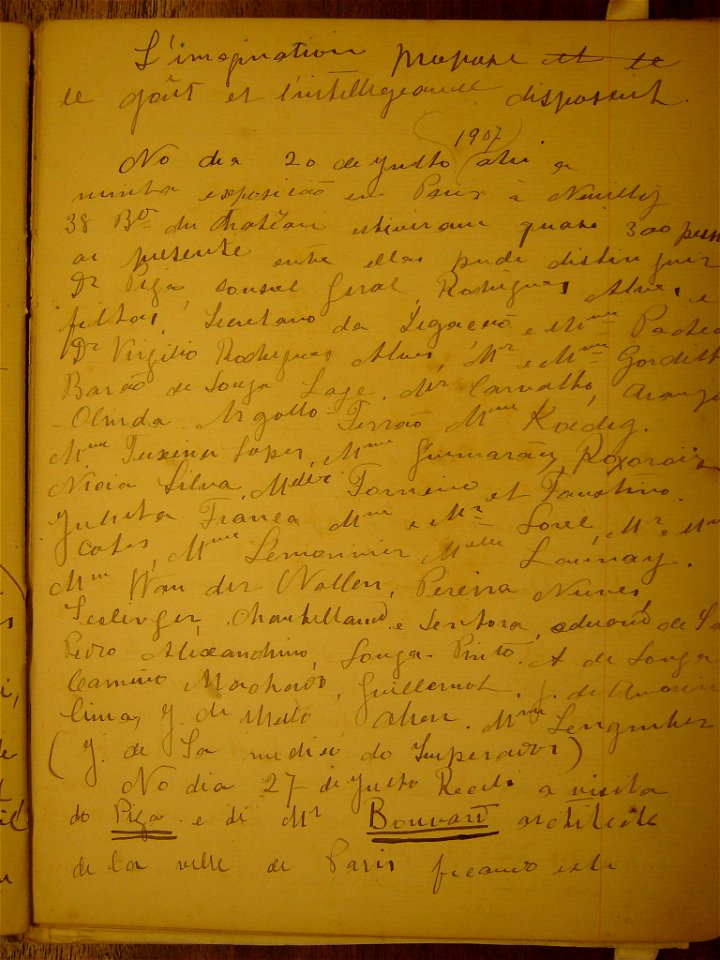 L'imagination propose et le
le goût et l'intelligeance disposent.
1907
No dia 20 de Julho abri a
minha exposição em Paris à Neuilly
38 Bor du Chatêau estiveram quasi 300 pess
as presente entre ellas pude distinguir
Dr Piza, consul Geral, Rodrigues Alves, e
filhas, Secretario da Legação e Mme Pacheco
Dr Virgilio Rodrigues Alves, Mr e Mme
Barão de Souza Lage, Mr Carvalho, Araujo
Olinda Argollo Ferrão Mme
Mme Teixeira Lopes, Mme Guimarães,
Nicia Silva, et Faustino.
Julieta França Mme e Mr Mr e Mme
Mme Lemonnier Melle Launay.
Mme Van der Nollen, Pereira Nunes,
e Senhora, de Sá
Pedro Alexandrino, Souza Pinto. A de Souza
Camino Machado, Guillemot, J. de
Lima, J. de Mello
(J. de Sá medico do Imperador)
No dia 27 de Julho Recebi a visita
do Piza e di Mr Bouvard architecte
de la ville de Paris ficando este